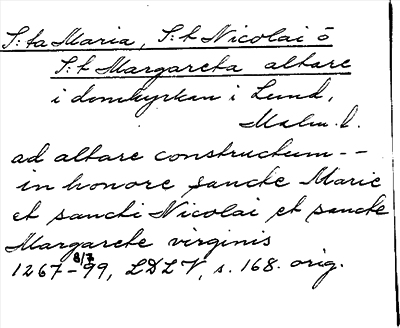 S:ta Maria, S:t Nicolai o
S:t Margareta altare
i domkyrkan i Lund,
Malm. l.
ad altare constructum --
in honore sancte Marie
et sancti Nicolai et sancte
Margarete virginis
1267-8/7 99, LDLV, s. 168. orig.